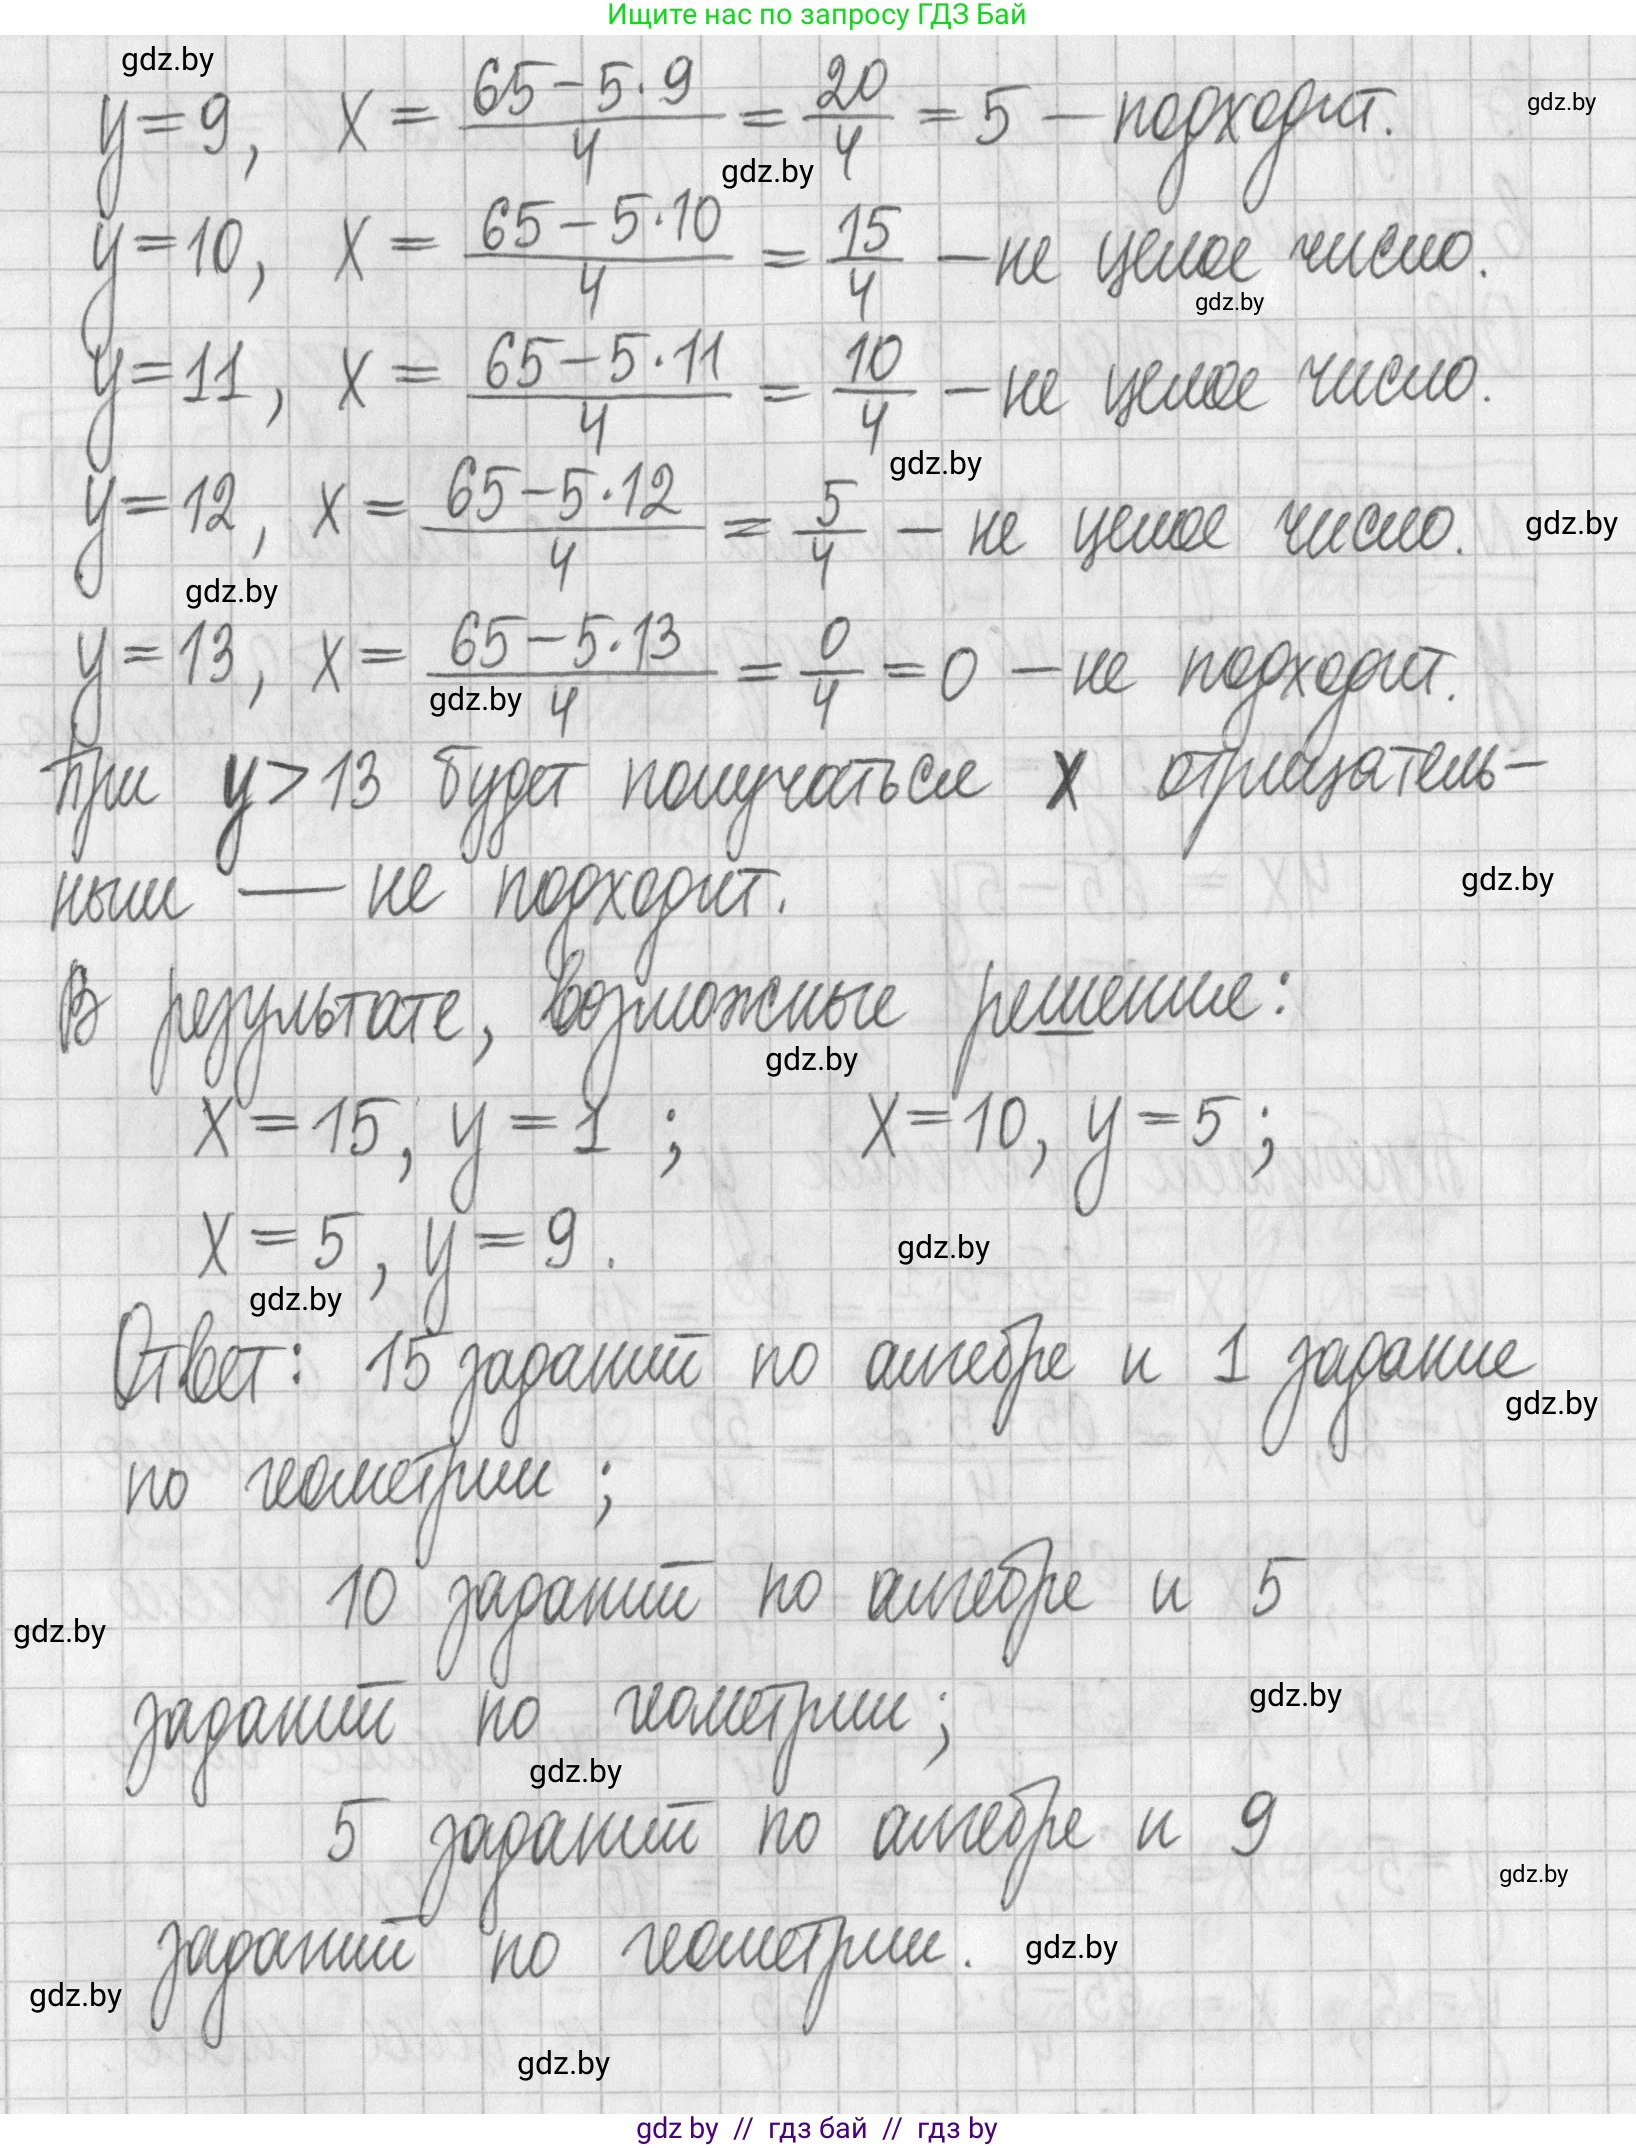 Ищите нас по запросу ГДЗ Бай
gdz.by
y = 9, x = (65 - 5·9)/4 = 20/4 = 5 — подходит.
gdz.by
gdz.by
y = 10, x = (65 - 5·10)/4 = 15/4 — не целое число.
gdz.by
y = 11, x = (65 - 5·11)/4 = 10/4 — не целое число.
gdz.by
y = 12, x = (65 - 5·12)/4 = 5/4 — не целое число.
gdz.by
gdz.by
y = 13, x = (65 - 5·13)/4 = 0/4 = 0 — не подходит.
gdz.by
При y > 13 будет получаться x отрицатель-
ным — не подходит.
gdz.by
В результате, возможные решение:
gdz.by
x = 15, y = 1 ; x = 10, y = 5 ;
x = 5, y = 9 .
gdz.by
gdz.by
Ответ: 15 заданий по алгебре и 1 задание
gdz.by
по геометрии ;
10 заданий по алгебре и 5
gdz.by
заданий по геометрии ;
gdz.by
gdz.by
5 заданий по алгебре и 9
gdz.by
заданий по геометрии.
gdz.by
gdz.by
gdz.by
gdz by // гдз бай // гдз by